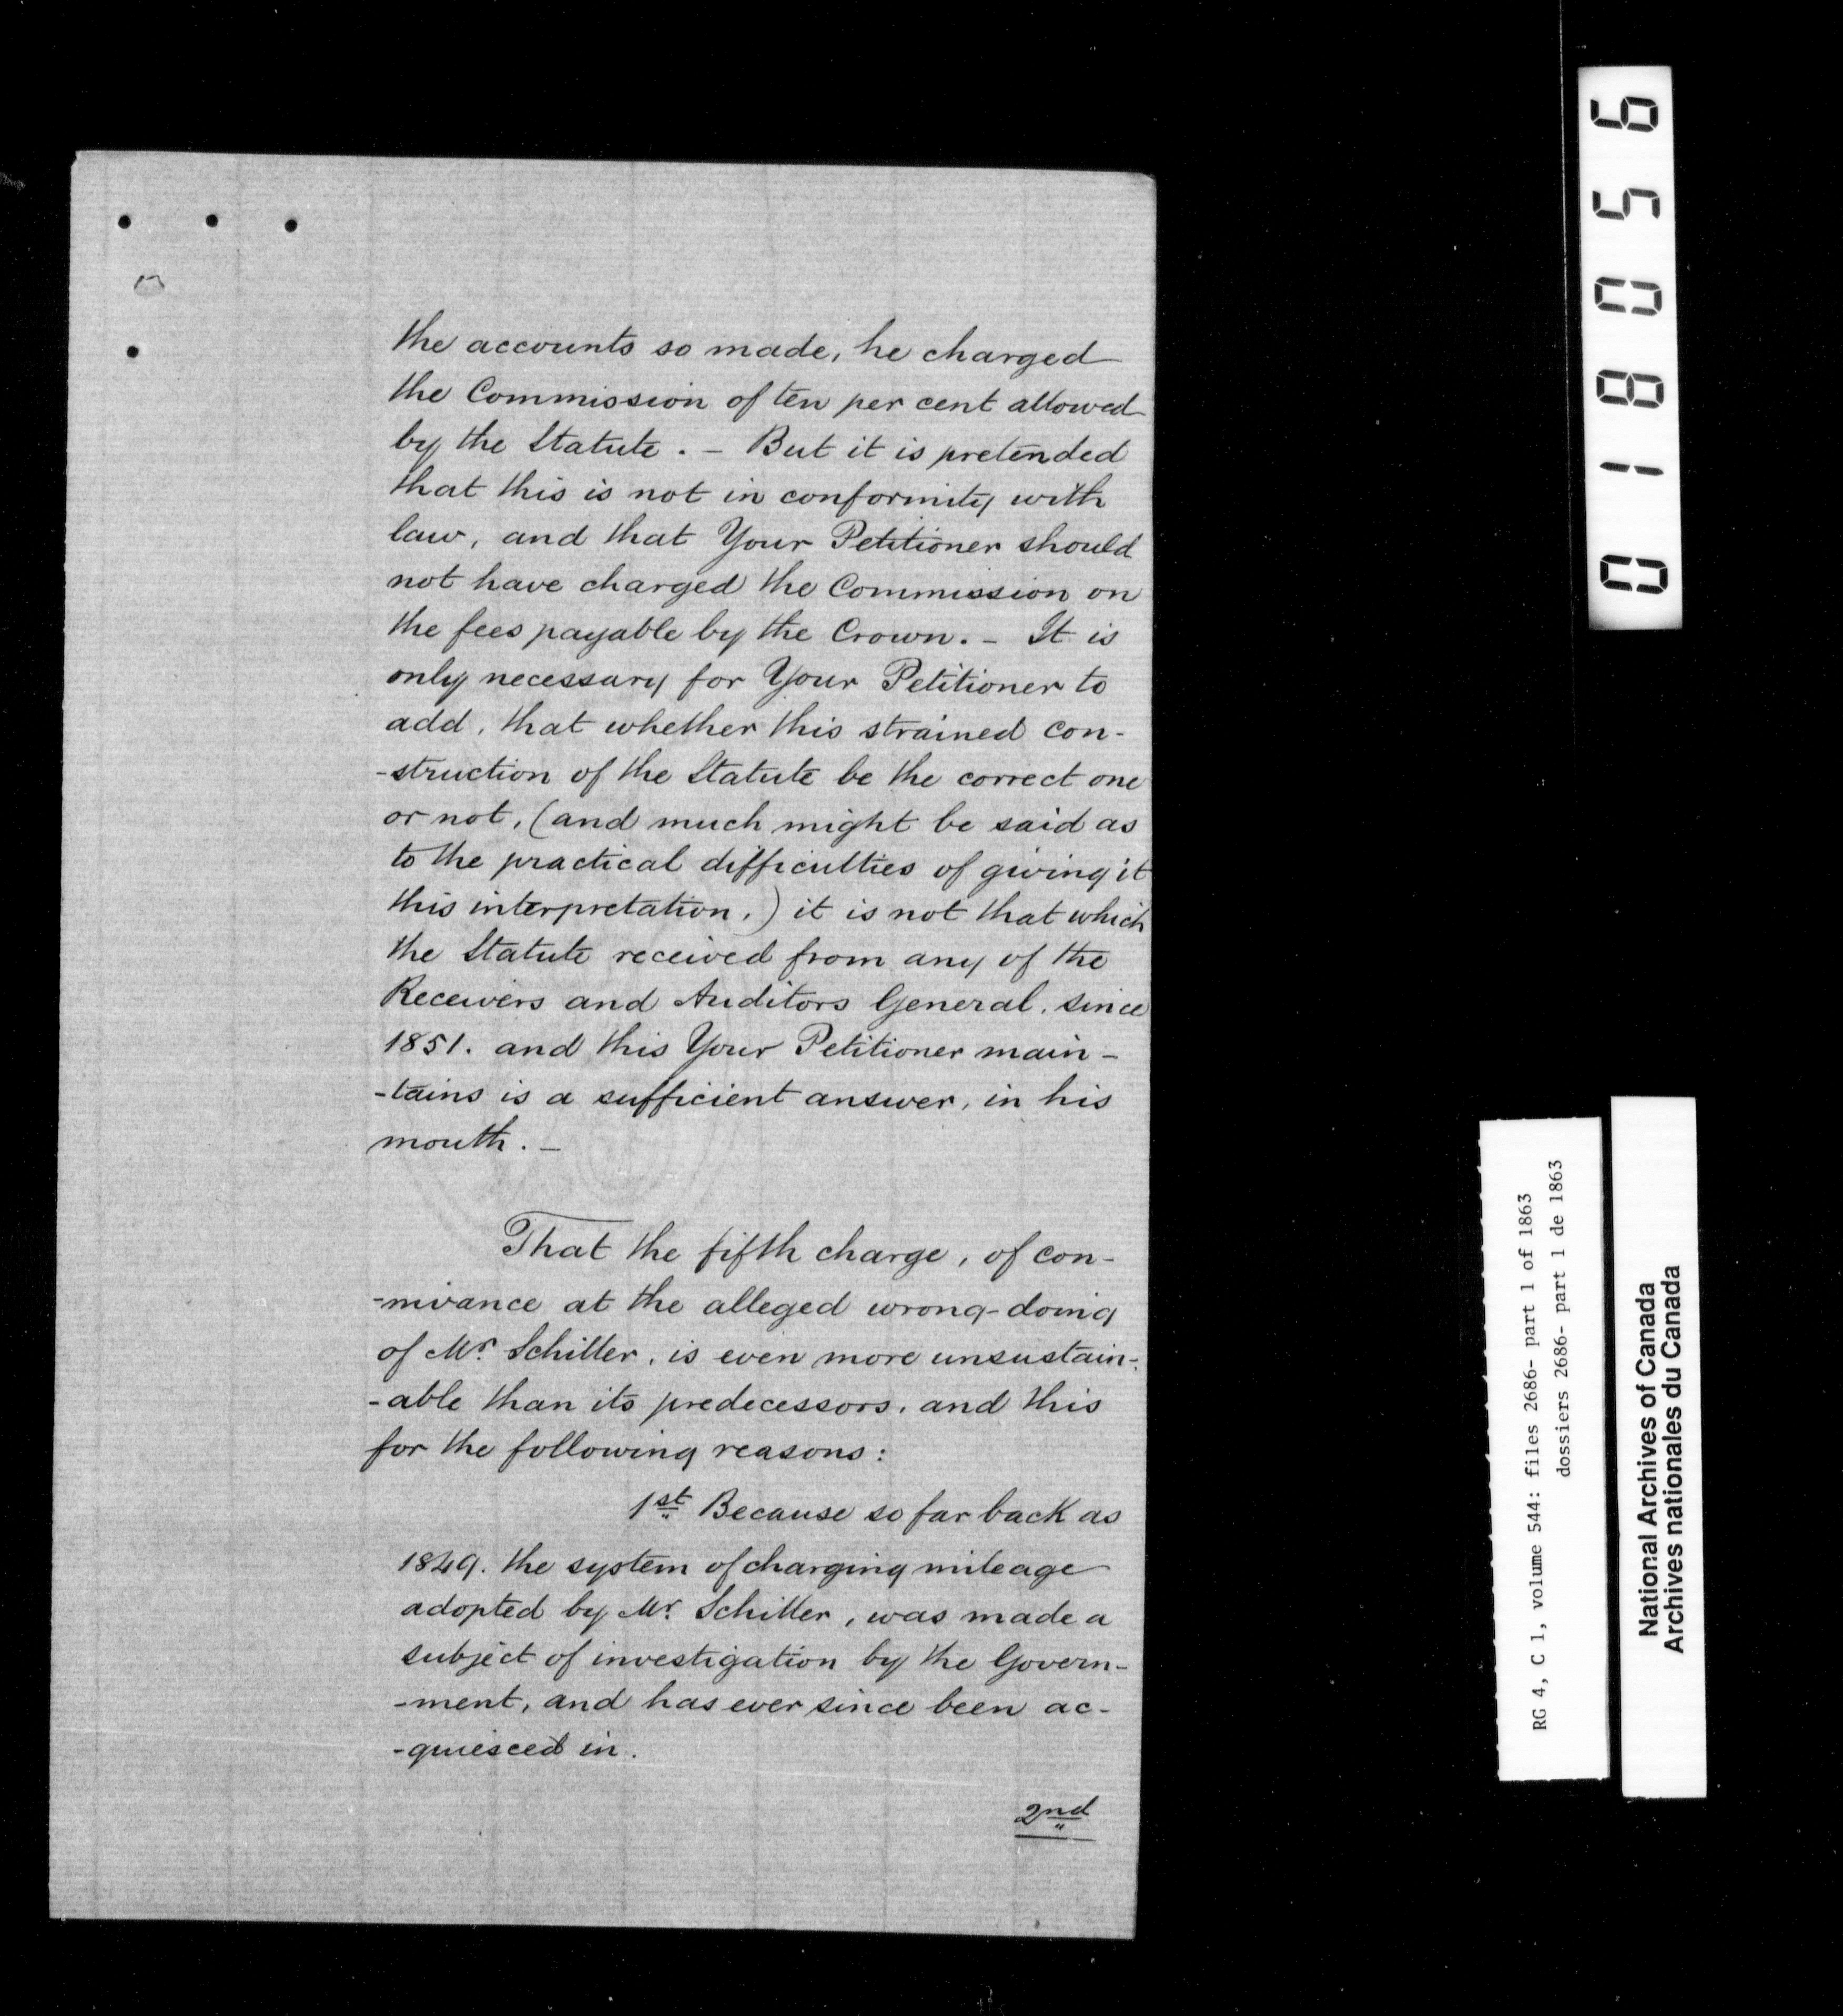 the accounts so made, he charged
the Commission of ten per cent allowed
by the Statute. - But it is pretended
that this is not in conformity with
law, and that Your Petitioner should
not have charged the Commission on
the fees payable by the Crown. - It is
only necessary for Your Petitioner to
add, that whether this strained con-
-struction of the Statute be the correct one
or not, (and much might be said as
to the practical difficulties of giving it
this interpretation,) it is not that which
the Statute received from any of the
Receivers and Auditors General, since
1851. and this Your Petitioner main-
-tains is a sufficient answer, in his
mouth. -
That the fifth charge, of con-
-nivance at the alleged wrong-doing
of Mr. Schiller, is even more unsustain-
-able than its predecessors, and this
for the following reasons:
1st Because so far back as
1849. the system of charging mileage
adopted by Mr. Schiller, was made a
subject of investigation by the Govern-
-ment, and has ever since been ac-
-quiesced in.
2nd
018056
RG 4, C 1, volume 544: files 2686- part 1 of 1863
dossiers 2686- part 1 de 1863
National Archives of Canada
Archives nationales du Canada